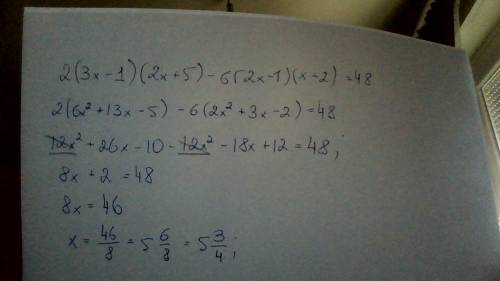 2(3x-1)(2x+5)-6(2x-1)(x-2)=48
2(6x²+13x-5)-6(2x²+3x-2)=48
12x²+26x-10-12x²-18x+12=48;
8x+2=48
8x=46
x=46/8=5 6/8=5 3/4;